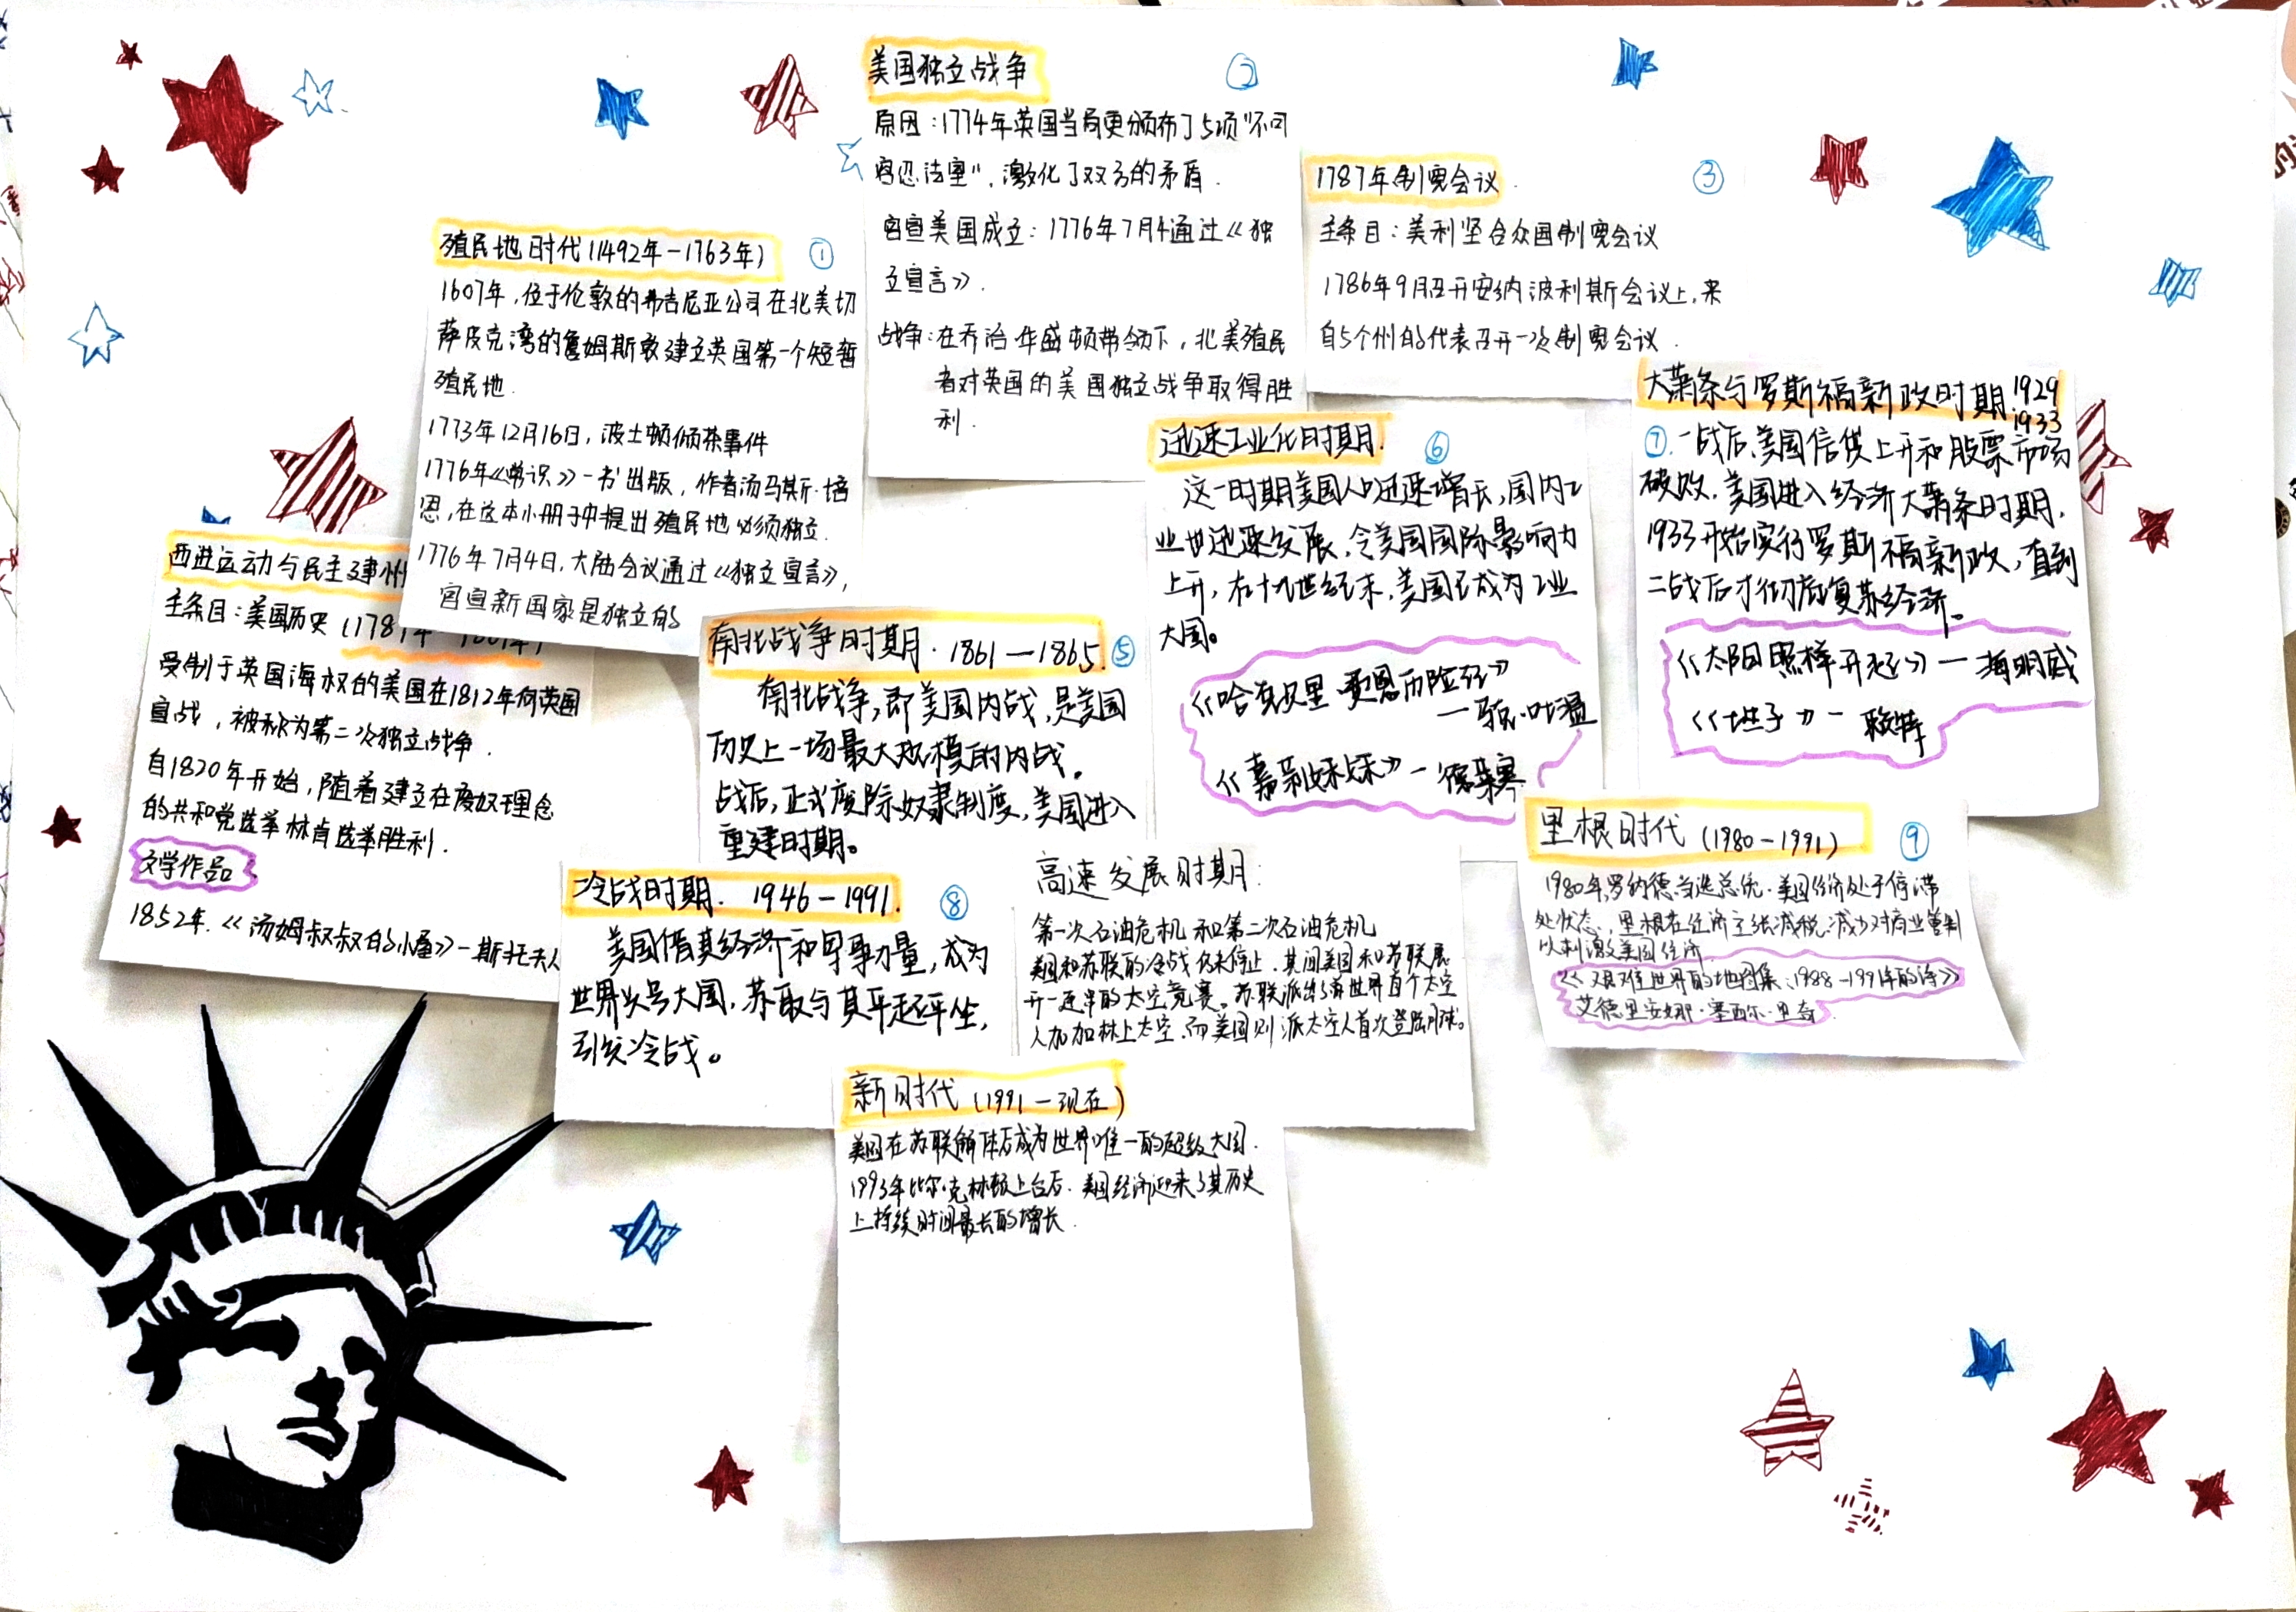 殖民地时代(1492年-1763年) ①
1607年,位于伦敦的弗吉尼亚公司在北美切
萨皮克湾的詹姆斯敦建立英国第一个短暂
殖民地.
1773年12月16日,波士顿倾茶事件
1776年《常识》一书出版,作者汤马斯·培
恩,在这本小册子中提出殖民地必须独立.
1776年7月4日,大陆会议通过《独立宣言》,
宣新国家是独立的
美国独立战争 ②
原因:1774年英国当局更颁布了5项"不可
容忍法案",激化了双方的矛盾.
宣美国成立:1776年7月4通过《独
立宣言》.
战争:在乔治·华盛顿带领下,北美殖民
者对英国的美国独立战争取得胜
利.
1787年制宪会议. ③
主条目:美利坚合众国制宪会议
1786年9月召开安纳波利斯会议上,来
自5个州的代表召开一次制宪会议.
西进运动与民主建州
主条目:美国历史(1789年
受制于英国海权的美国在1812年向英国
宣战,被称为第二次独立战争.
自1820年开始,随着建立在废奴理念
的共和党选举林肯选举胜利.
文学作品
1852年.《汤姆叔叔的小屋》-斯托夫人
南北战争时期.1861—1865. ⑤
南北战争,即美国内战,是美国
历史上一场最大规模的内战.
战后,正式废除奴隶制度,美国进入
重建时期。
迅速工业化时期. ⑥
这一时期美国人口迅速增长,国内工
业也迅速发展,令美国国际影响力
上升,在十九世纪末,美国已成为工业
大国。
《哈克贝里·费恩历险记》
—马克·吐温
《嘉莉妹妹》—德莱塞
大萧条与罗斯福新政时期.1929
1933
⑦.一战后,美国信贷上升和股票市场
破败.美国进入经济大萧条时期.
1933开始实行罗斯福新政,直到
二战后才彻底复苏经济。
《太阳照样升起》—海明威
《土生子》-赖特
冷战时期. 1946-1991. ⑧
美国借其经济和军事力量,成为
世界头号大国,苏联与其平起平坐,
引发冷战。
高速发展时期:
第一次石油危机和第二次石油危机
美国和苏联的冷战仍未停止.其间美国和苏联展
开一连串的太空竞赛。苏联派出了世界首个太空
人加加林上太空.而美国则派太空人首次登陆月球。
里根时代(1980-1991) ⑨
1980年,罗纳德当选总统.美国经济处于停滞
处状态,里根在经济主张减税.减少对商业管制
以刺激美国经济
《艰难世界的地图集:1988-1991年的诗》
艾德里安娜·塞西尔·里奇
新时代(1991-现在)
美国在苏联解体后成为世界唯一的超级大国.
1993年比尔·克林顿上台后.美国经济迎来了其历史
上持续时间最长的增长.